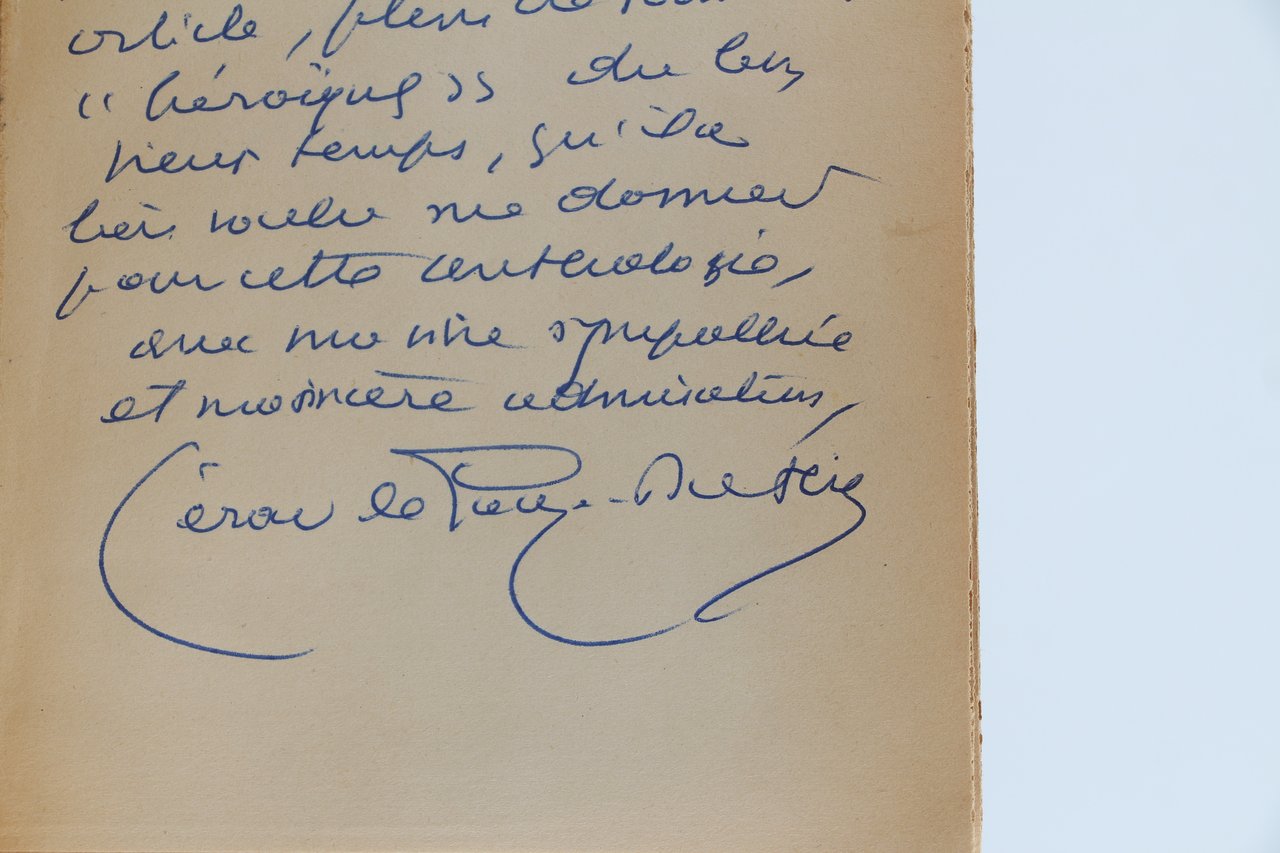 article, plein de
« héroïques » du bon
vieux temps, qu'il a
bien voulu me donner
pour cette anthologie,
avec ma vive sympathie
et ma sincère admiration,